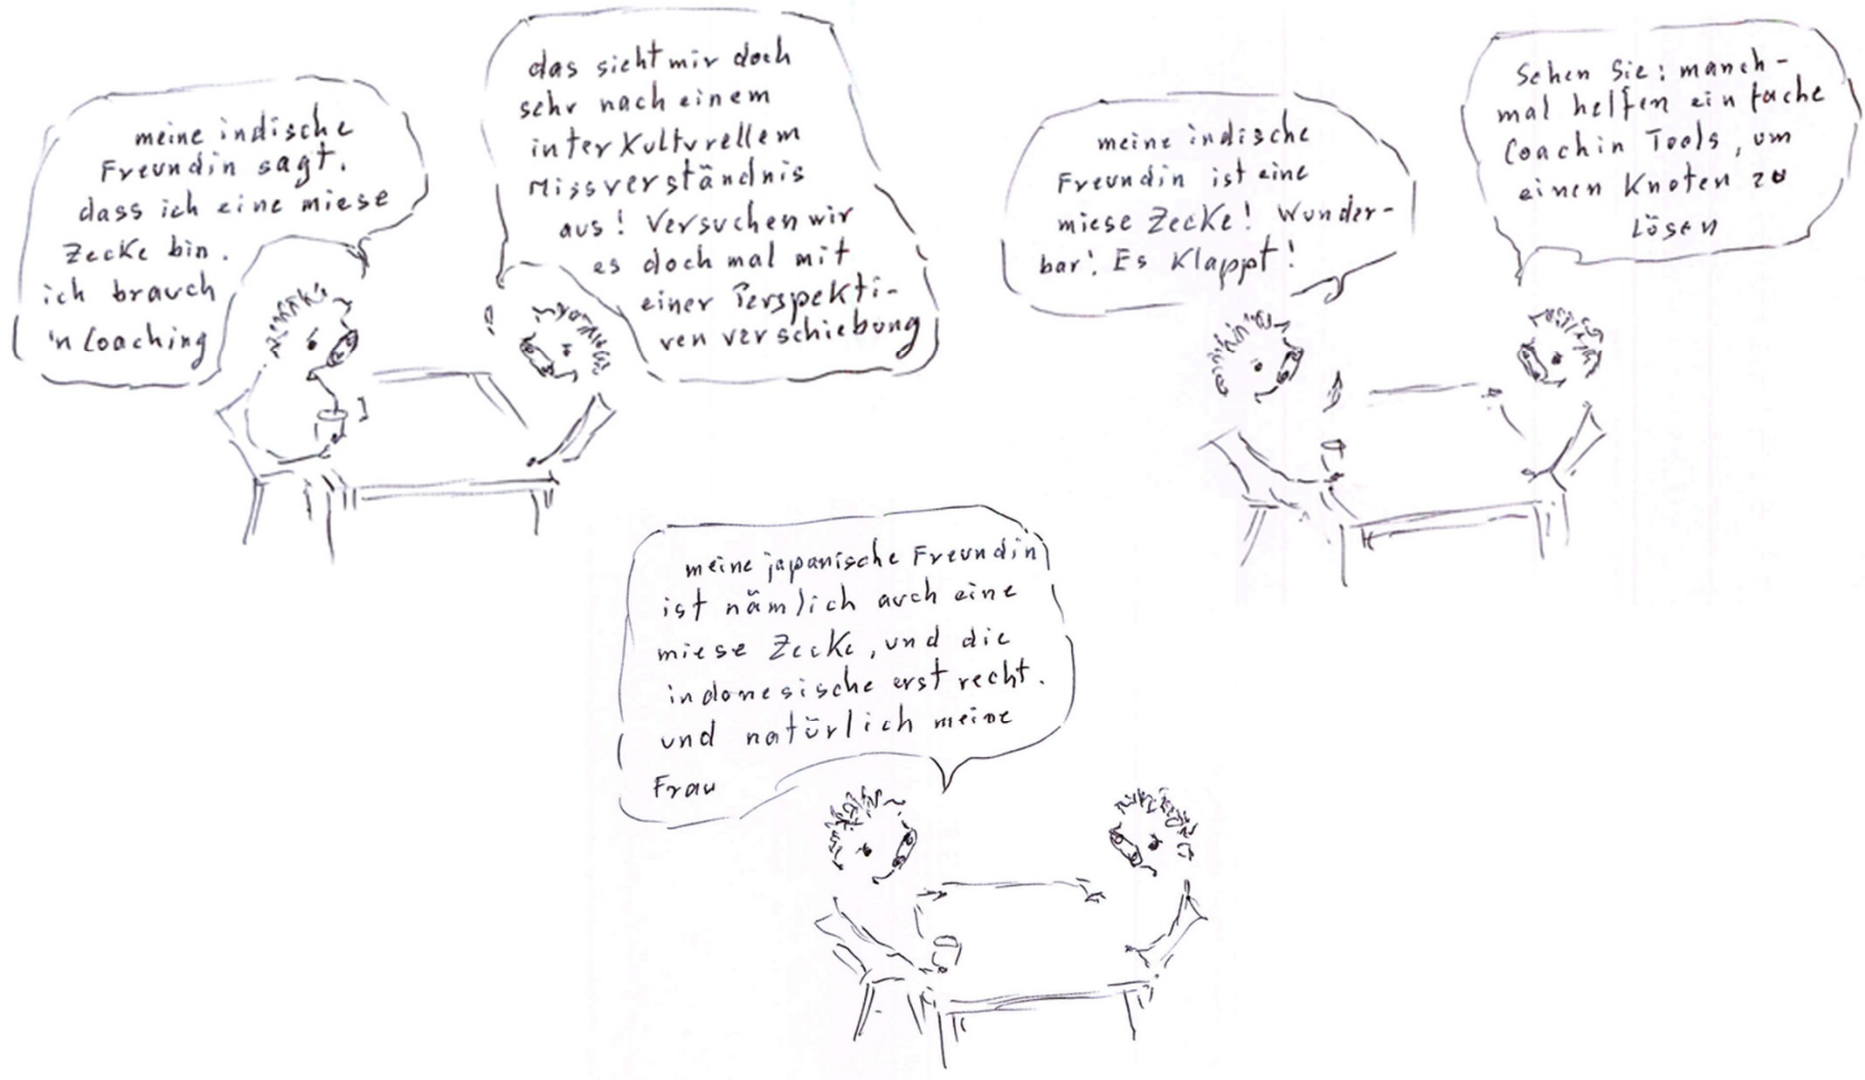 meine indische
Freundin sagt.
dass ich eine miese
Zecke bin.
ich brauch
'n Coaching
das sieht mir doch
sehr nach einem
interkulturellem
Missverständnis
aus! Versuchen wir
es doch mal mit
einer Perspekti-
ven verschiebung
meine indische
Freundin ist eine
miese Zecke! Wunder-
bar! Es klappt!
Sehen Sie: manch-
mal helfen einfache
Coachin Tools, um
einen Knoten zu
Lösen
meine japanische Freundin
ist nämlich auch eine
miese Zecke, und die
indonesische erst recht.
und natürlich meine
Frau